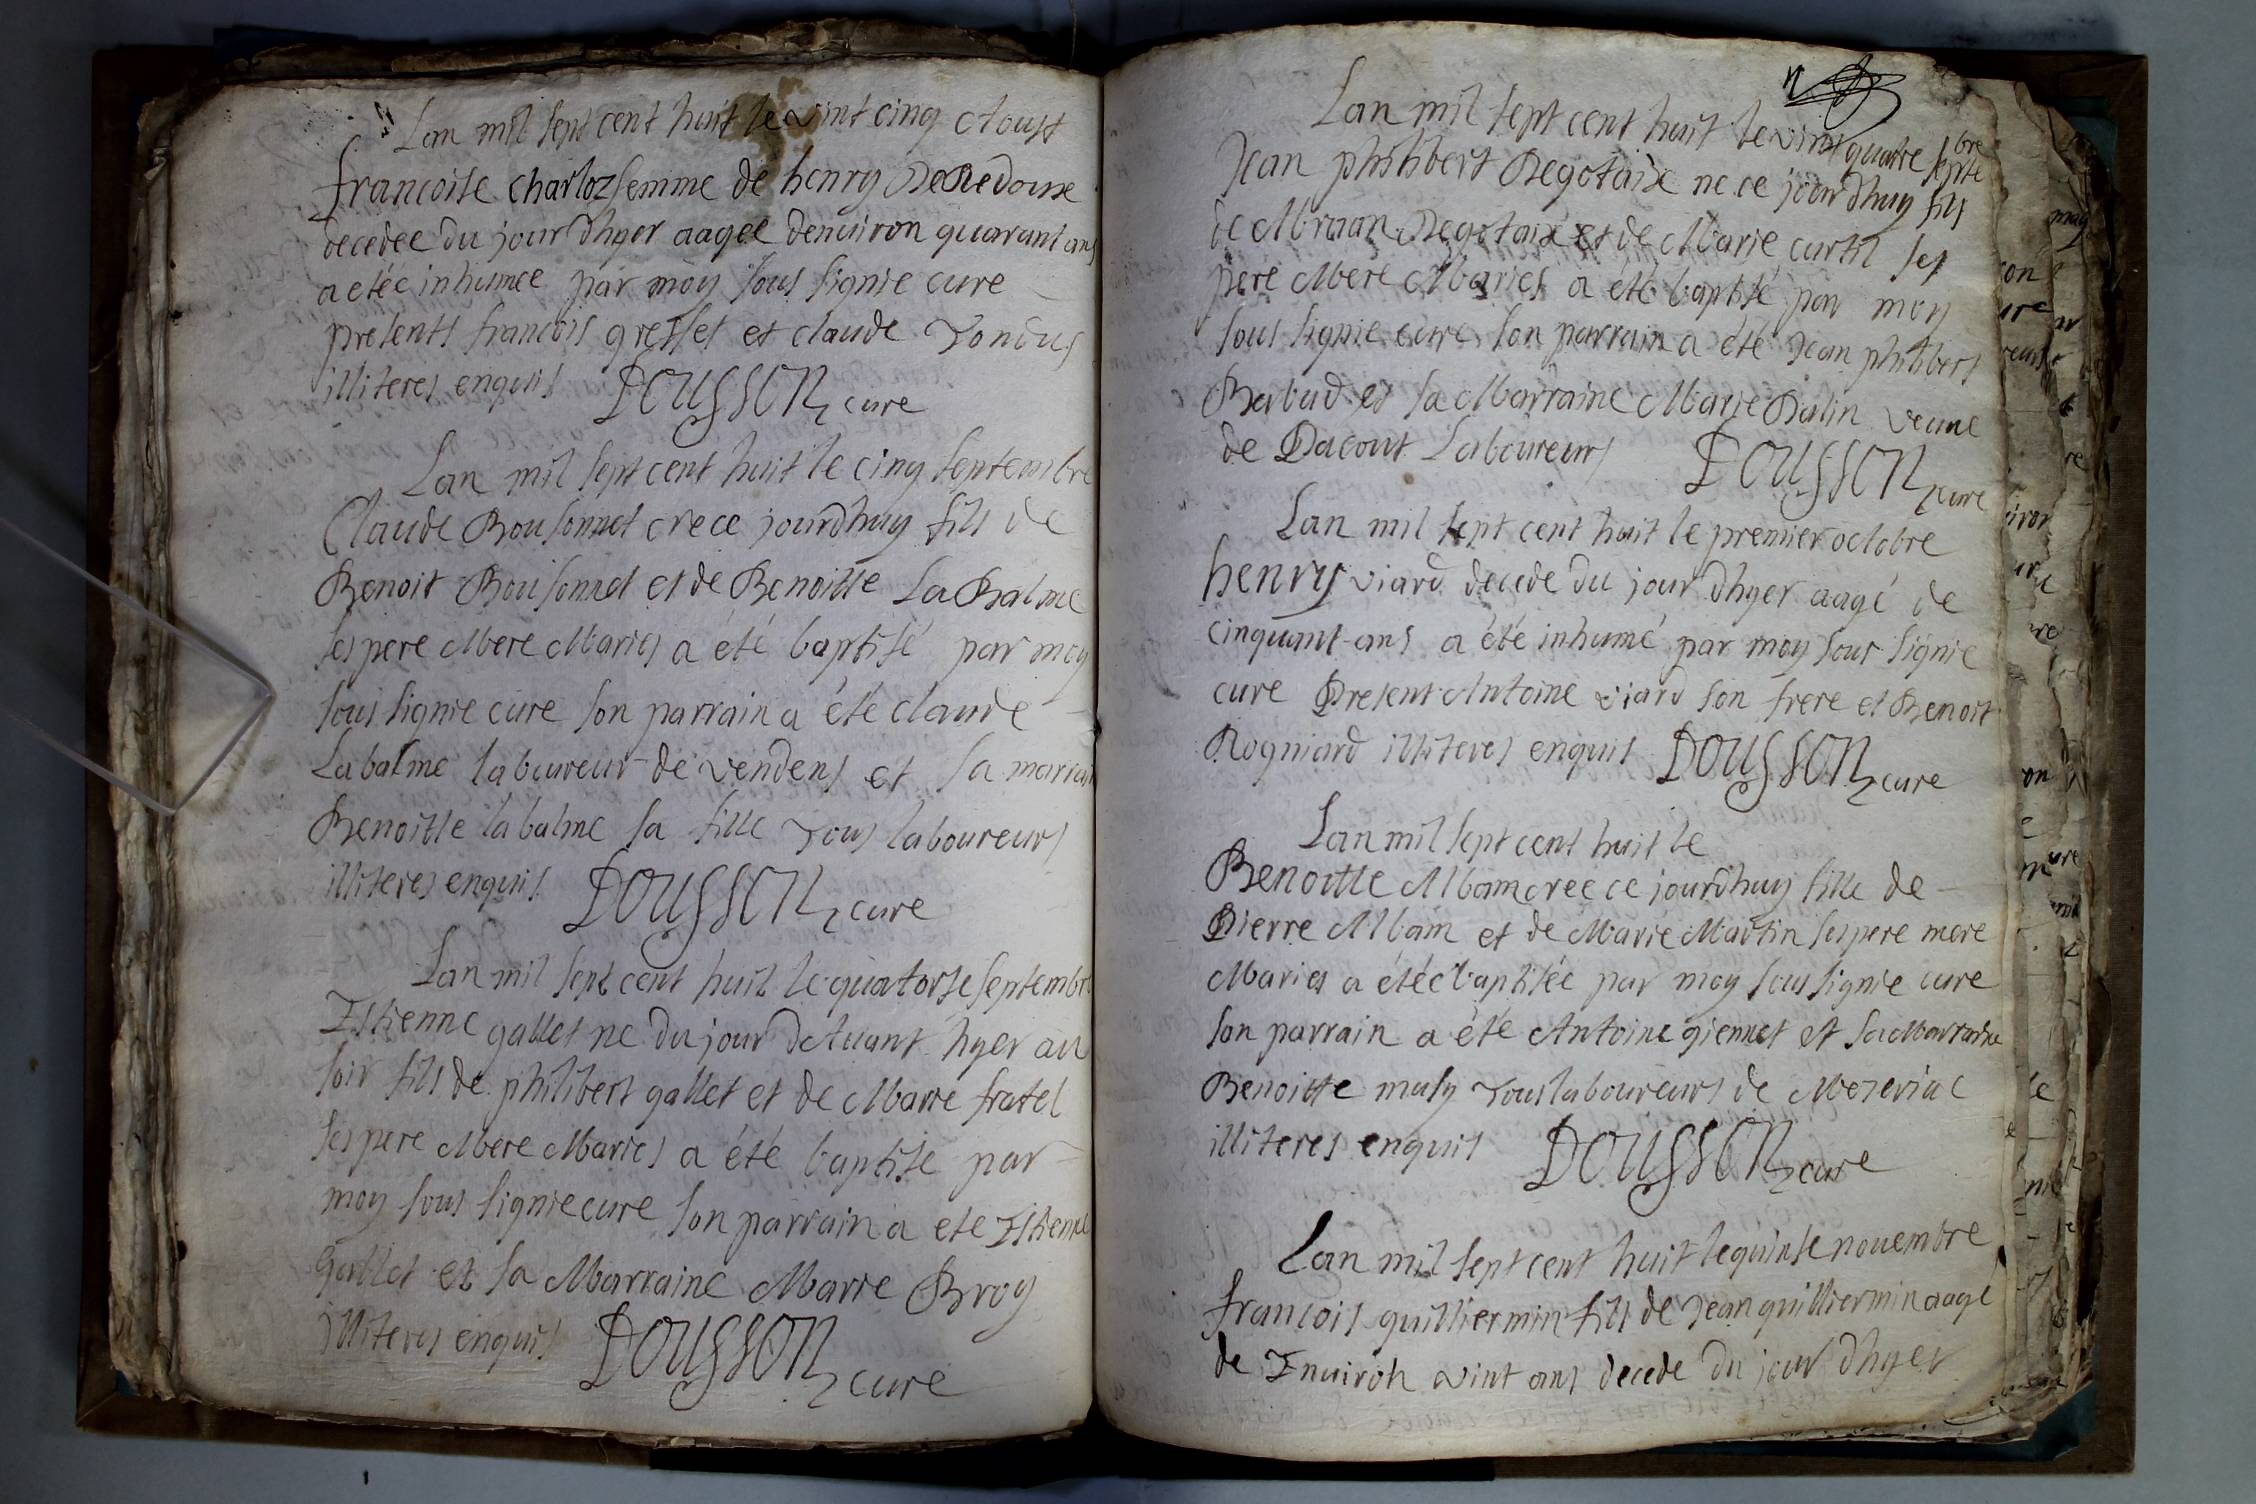 Lan mil sept cent huit le vint cinq Aoust
francoise charloz femme de henry
decedee du jour dhyer aagee denuiron quarant ans
a etéc inhumee par moy sous signie cure
presents francois gresset et claude
illiteres enquis DOUSSON cure
Lan mil sept cent huit le cinq septembre
Claude Bousonnet cree ce jourdhuy fils de
Benoit Bousonnet et de Benoitte La Balme
ses pere Mere Maries a été baptisé par moy
sous signie cure son parrain a été claude
Labalme laboureur de vendens et sa marrain
Benoitte labalme sa fille Tous laboureurs
illiteres enquis DOUSSON cure
Lan mil sept cent huit le quatorse septembre
Estienne gallet ne du jour dAuant hyer au
soir fils de philibert gallet et de Marie fratel
ses pere Mere Maries a été baptise par
moy sous signie cure son parrain a ete Estienne
gallet et sa Marraine Marie Broy
illiteres enquis DOUSSON cure
Lan mil sept cent huit le vint quatre septebre
Jean philibert Degotaix ne ce jourdhuy fils
de Degotaix et de Marie curtil ses
pere Mere Maries a été baptisé par moy
sous signie cure son parrain a été Jean philibert
Berbud et sa Marraine Marie Balin veuue
de Dacout Laboureurs DOUSSON cure
Lan mil sept cent huit le premier octobre
henry viard decede du jour dhyer aagé de
cinquant ans a été inhumé par moy sous signie
cure Present Antoine viard son frere et Benoit
Rogniard illiteres enquis DOUSSON cure
Lan mil sept cent huit le
Benoitte Albam cree ce jourdhuy fille de
Pierre Albam et de Marie Martin ses pere mere
Maries a étéc baptisée par moy sous signie cure
son parrain a été Antoine giennet et sa Marraine
Benoitte masy Tous laboureurs de Meseriac
illiteres enquis DOUSSON cure
Lan mil sept cent huit le quinse nouembre
francois guilliermin fils de Jean guilliermin aagé
de Enuiron vint ans decede du jour dhyer